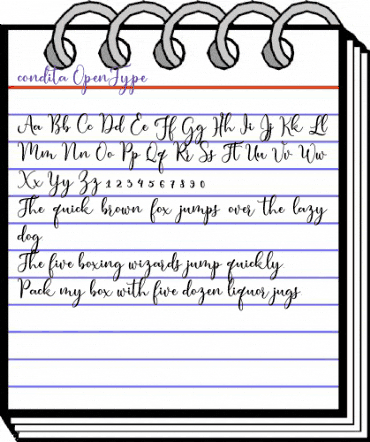 condita OpenType
Aa Bb Cc Dd Ee Ff Gg Hh Ii Jj Kk Ll
Mm Nn Oo Pp Qq Rr Ss Tt Uu Vv Ww
Xx Yy Zz 1 2 3 4 5 6 7 8 9 0
The quick brown fox jumps over the lazy
dog
The five boxing wizards jump quickly
Pack my box with five dozen liquor jugs